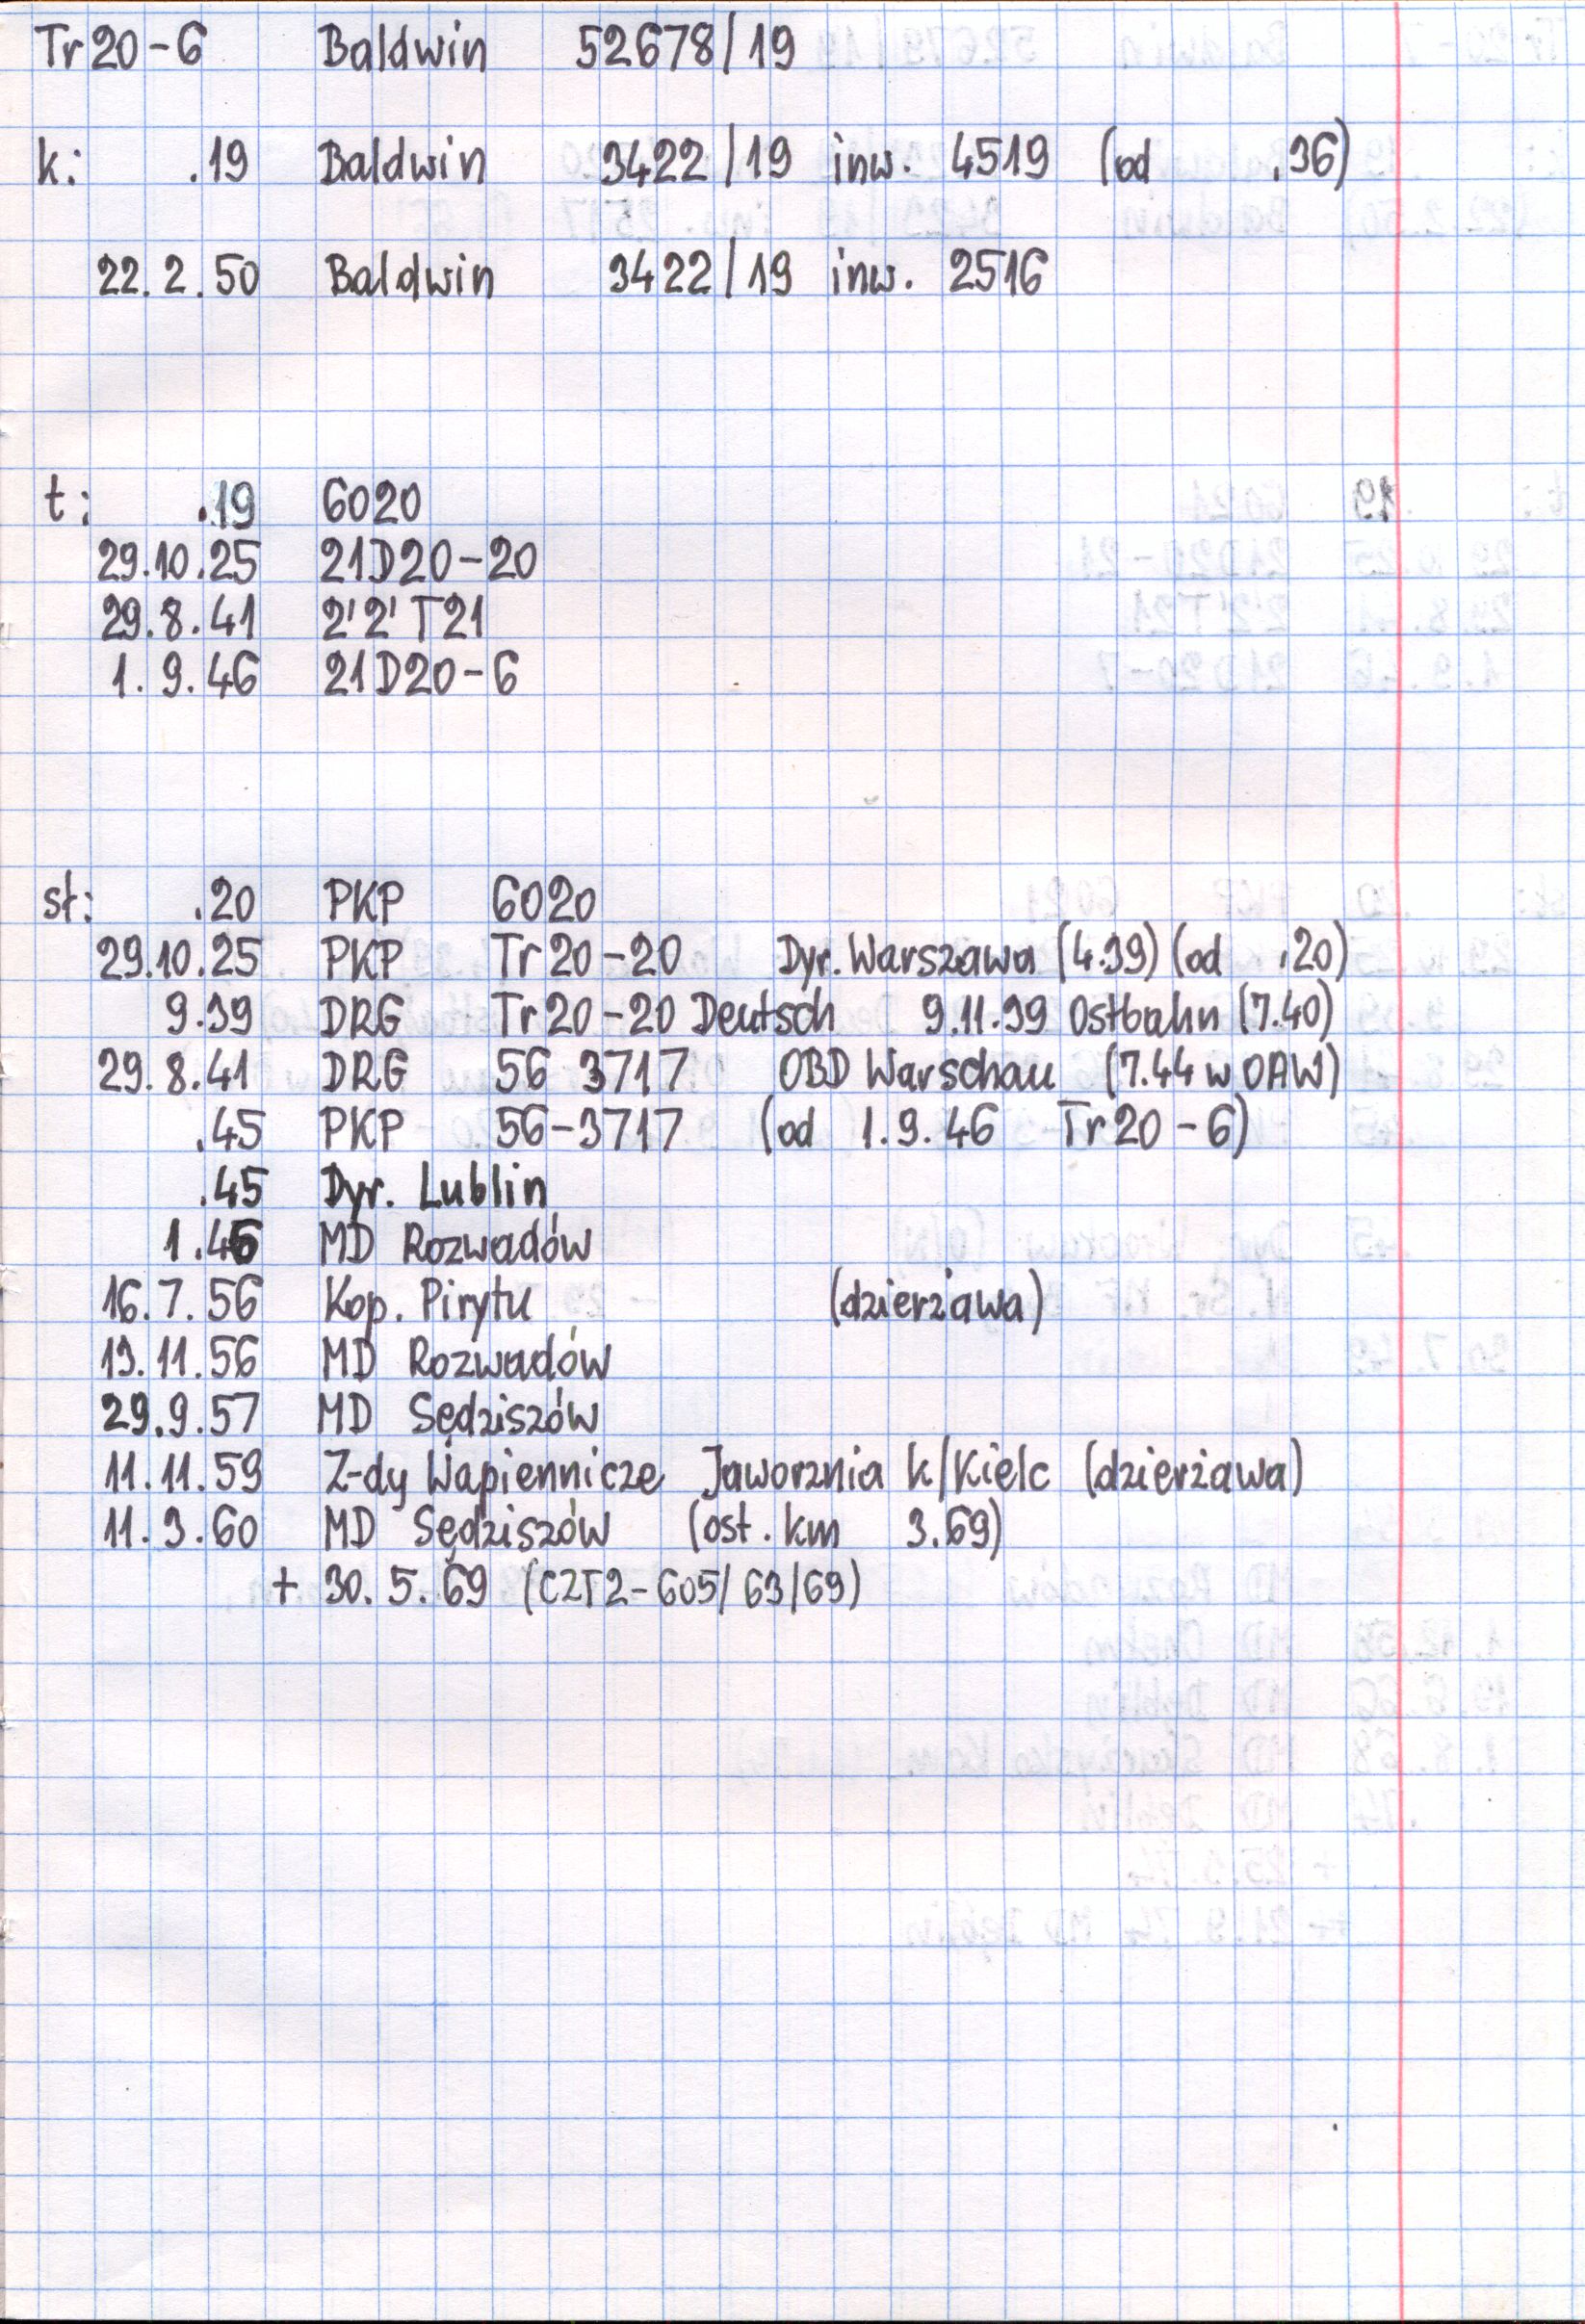 Tr 20-6 Baldwin 52678/19
k: .19 Baldwin 3422/19 inw. 4519 (od .36)
22.2.50 Baldwin 3422/19 inw. 2516
t: .19 6020
29.10.25 21D20-20
29.8.41 2'2'T21
1.9.46 21D20-6
sł: .20 PKP 6020
29.10.25 PKP Tr 20-20 Dyr. Warszawa (4.39) (od .20)
9.39 DRG Tr 20-20 Deutsch 9.11.39 Ostbahn (7.40)
29.8.41 DRG 56 3717 OBD Warschau (7.44 w OAW)
.45 PKP 56-3717 (od 1.9.46 Tr 20-6)
.45 Dyr. Lublin
1.46 MD Rozwadów
16.7.56 Kop. Pirytu (dzierżawa)
13.11.56 MD Rozwadów
29.9.57 MD Sędziszów
11.11.59 Z-dy Wapiennicze Jaworznia k/Kielc (dzierżawa)
11.3.60 MD Sędziszów (ost. km 3.69)
+ 30.5.69 (CZT2-605/63/69)